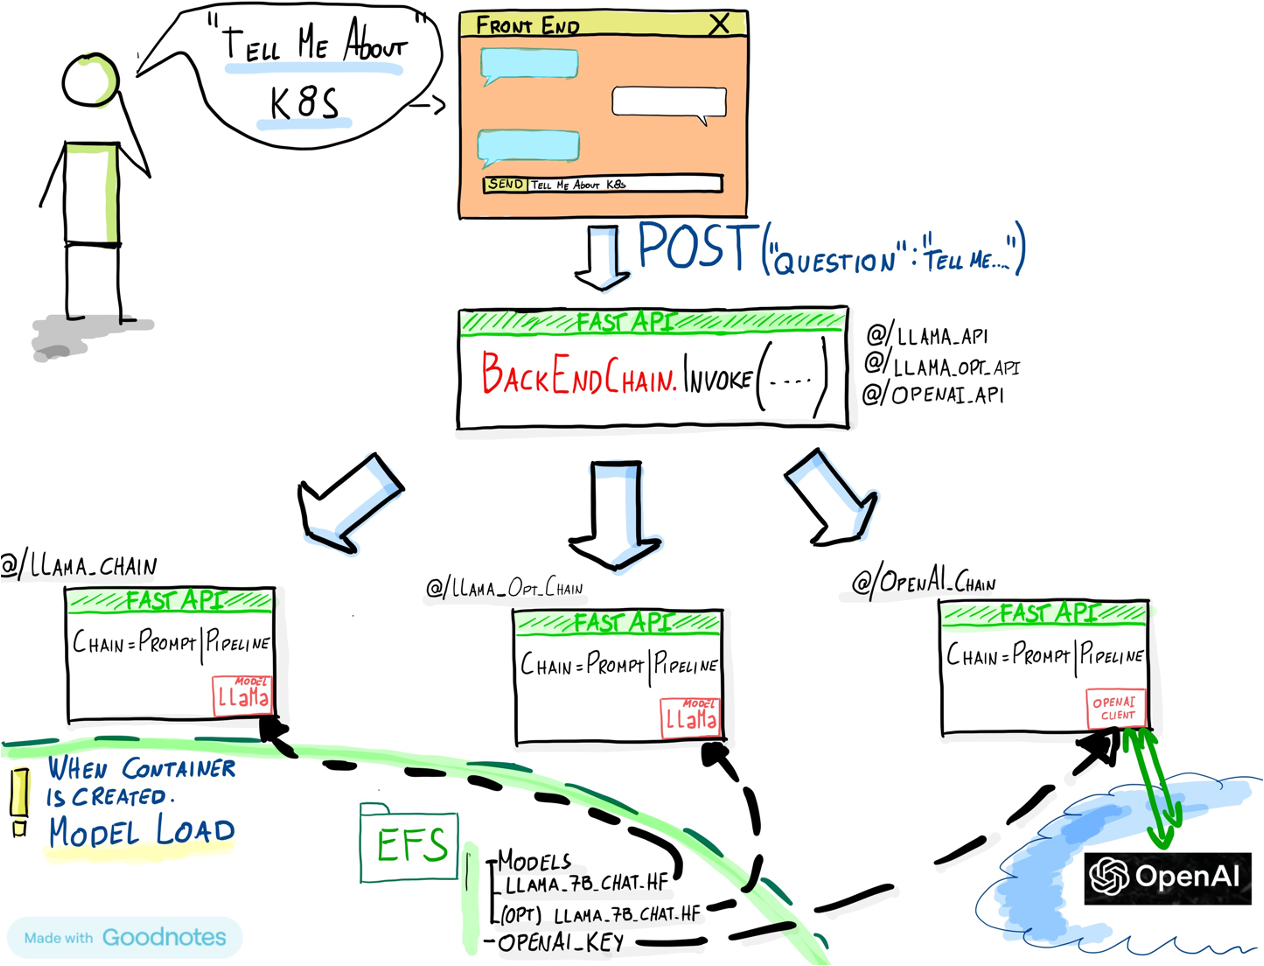 "TELL ME ABOUT"
K8S
FRONT END X
SEND TELL ME ABOUT K8s
POST("QUESTION":"TELL ME....")
FAST API
BACKENDCHAIN.INVOKE(....)
@/LLAMA_API
@/LLAMA_OPT_API
@/OPENAI_API
@/LLAMA_CHAIN
FAST API
CHAIN=PROMPT|PIPELINE
MODEL
LLaMa
@/LLAMA_OPT_CHAIN
FAST API
CHAIN=PROMPT|PIPELINE
MODEL
LLaMa
@/OPENAI_CHAIN
FAST API
CHAIN=PROMPT|PIPELINE
OPENAI
CLIENT
! WHEN CONTAINER
IS CREATED.
MODEL LOAD
EFS
MODELS
LLAMA_7B_CHAT_HF
(OPT) LLAMA_7B_CHAT_HF
OPENAI_KEY
OpenAI
Made with Goodnotes